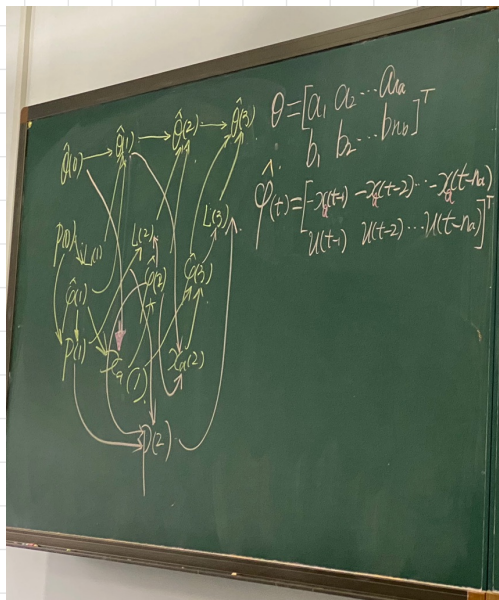 θ̂(0) → θ̂(1) → θ̂(2) → θ̂(3)
θ = [a₁ a₂ ⋯ aₙₐ
b₁ b₂ ⋯ bₙb]ᵀ
φ̂(t) = [-xₐ(t-1) -xₐ(t-2) ⋯ -xₐ(t-nₐ)
u(t-1) u(t-2) ⋯ u(t-nₐ)]ᵀ
P(0) L(1) L(2) L(3)
φ̂(1) φ̂(2) φ̂(3)
P(1) xₐ(1) xₐ(2)
P(2)